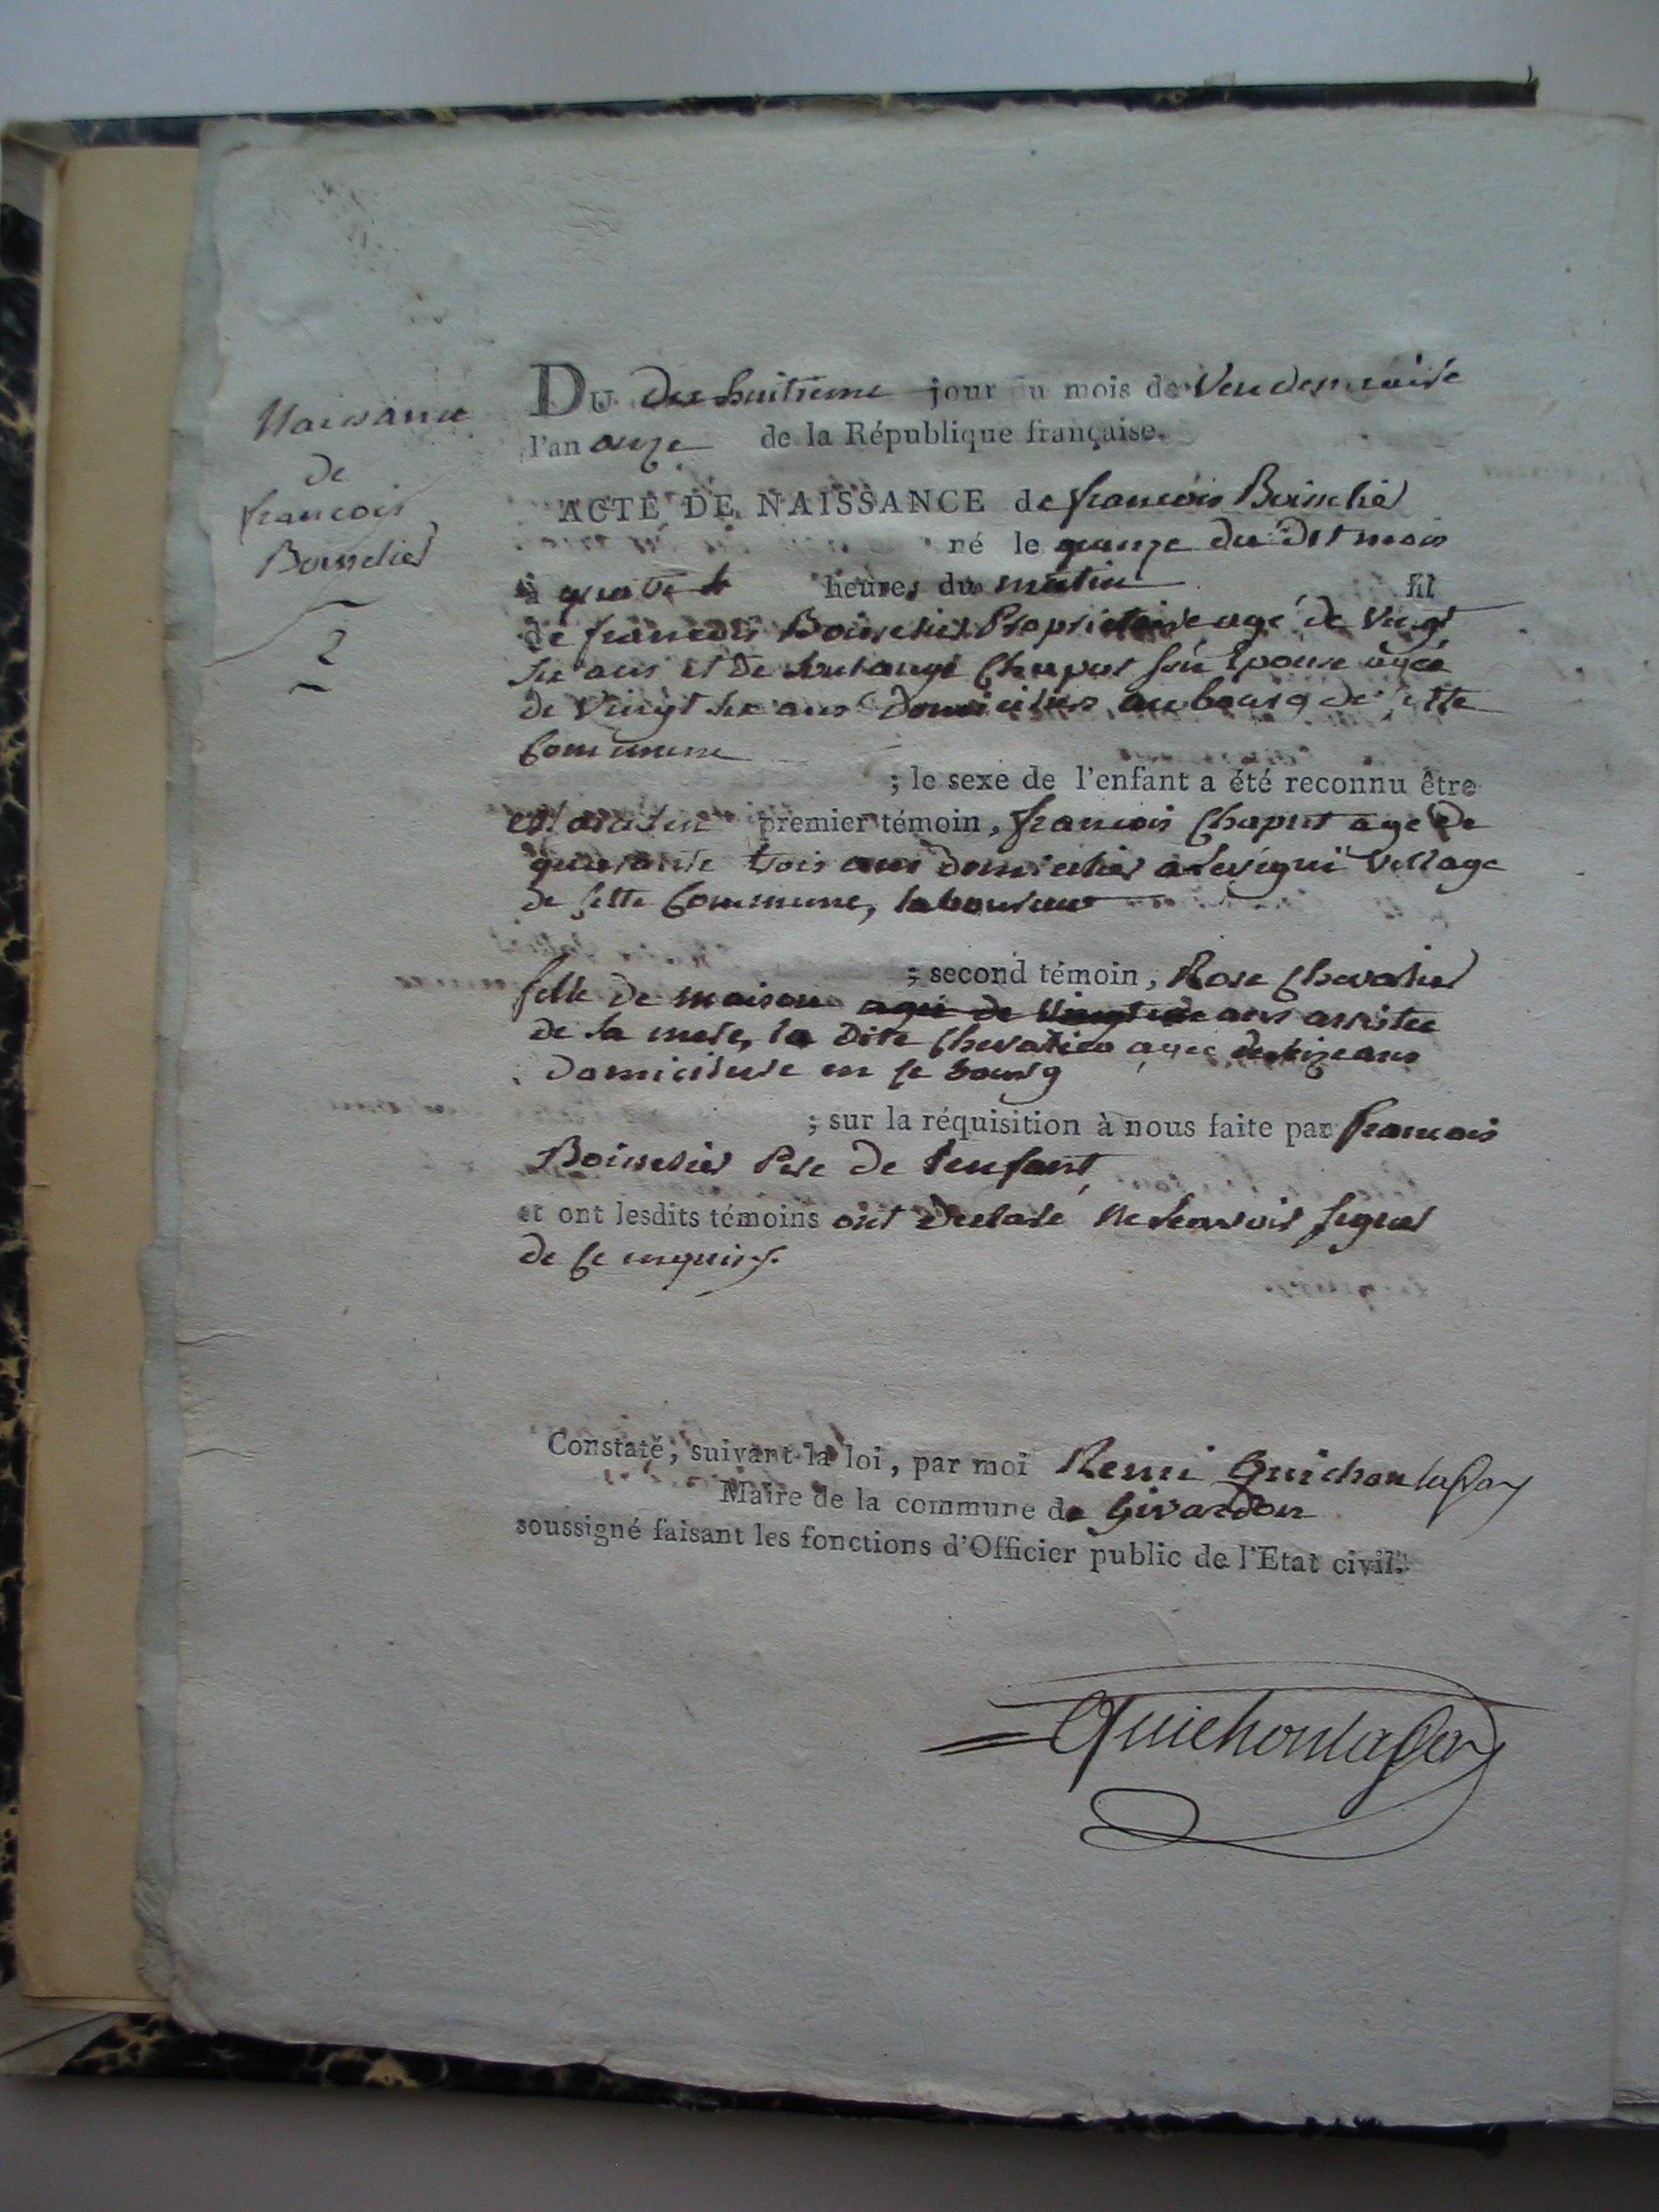 Naissance
de
francois
Boinchet
2
DU dix huitieme jour du mois de Vendemaire
l'an onze de la République française.
ACTE DE NAISSANCE de francois
né le quinze du dit mois
à quatre heures du matin fil
de francois Proprietaire agé de Vingt
six ans et de Solange Chaput son Epouse agée
de Vingt six ans au bourg de cette
Commune
; le sexe de l'enfant a été reconnu être
masculin premier témoin, francois Chaput age de
quarante trois ans a Village
de sette Commune, laboureur
; second témoin, Rose Chevalier
fille de maison agée de Vingt ans assistée
de sa mere, la dite Chevalier agée ans
en se bourg
; sur la réquisition à nous faite par francois
Pere de lenfant
et ont lesdits témoins ont declaré ne scavoir signer
de se enquis
Constaté, suivant la loi, par moi Remi Guichon
Maire de la commune de Givardon
soussigné faisant les fonctions d'Officier public de l'Etat civil.